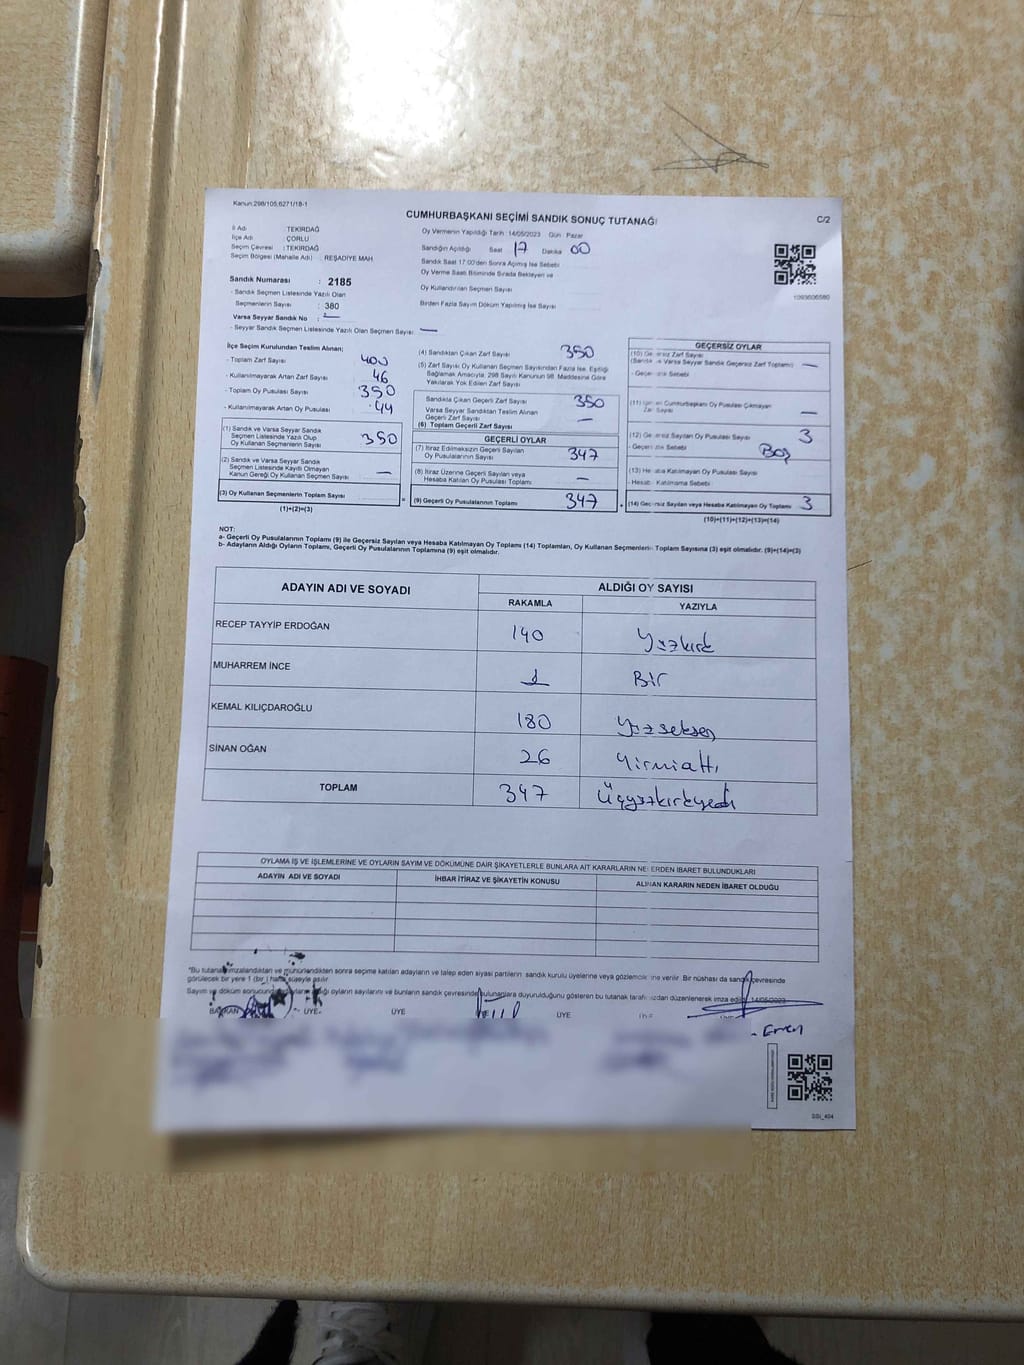 Kanun:298/105;6271/18-1
CUMHURBAŞKANI SEÇİMİ SANDIK SONUÇ TUTANAĞI
C/2
İl Adı : TEKİRDAĞ
İlçe Adı : ÇORLU
Seçim Çevresi : TEKİRDAĞ
Seçim Bölgesi (Mahalle Adı) : REŞADİYE MAH
Oy Vermenin Yapıldığı Tarih :14/05/2023 Gün : Pazar
Sandığın Açıldığı Saat 17 Dakika 00
Sandık Saat 17:00'den Sonra Açılmış İse Sebebi
Oy Verme Saati Bitiminde Sırada Bekleyen ve
Oy Kullandırılan Seçmen Sayısı
Birden Fazla Sayım Döküm Yapılmış İse Sayısı
1093606580
Sandık Numarası : 2185
- Sandık Seçmen Listesinde Yazılı Olan
Seçmenlerin Sayısı : 380
Varsa Seyyar Sandık No :
- Seyyar Sandık Seçmen Listesinde Yazılı Olan Seçmen Sayısı: —
İlçe Seçim Kurulundan Teslim Alınan;
- Toplam Zarf Sayısı 400
- Kullanılmayarak Artan Zarf Sayısı 46
- Toplam Oy Pusulası Sayısı 350
- Kullanılmayarak Artan Oy Pusulası 44
(1) Sandık ve Varsa Seyyar Sandık
Seçmen Listesinde Yazılı Olup
Oy Kullanan Seçmenlerin Sayısı 350
(2) Sandık ve Varsa Seyyar Sandık
Seçmen Listesinde Kayıtlı Olmayan
Kanun Gereği Oy Kullanan Seçmen Sayısı —
(3) Oy Kullanan Seçmenlerin Toplam Sayısı =
(1)+(2)=(3)
(4) Sandıktan Çıkan Zarf Sayısı 350
(5) Zarf Sayısı Oy Kullanan Seçmen Sayısından Fazla İse, Eşitliği
Sağlamak Amacıyla, 298 Sayılı Kanunun 98. Maddesine Göre
Yakılarak Yok Edilen Zarf Sayısı
Sandıkta Çıkan Geçerli Zarf Sayısı 350
Varsa Seyyar Sandıktan Teslim Alınan
Geçerli Zarf Sayısı —
(6) Toplam Geçerli Zarf Sayısı
GEÇERLİ OYLAR
(7) İtiraz Edilmeksizin Geçerli Sayılan
Oy Pusulasının Sayısı 347
(8) İtiraz Üzerine Geçerli Sayılan veya
Hesaba Katılan Oy Pusulası Toplamı —
(9) Geçerli Oy Pusulalarının Toplamı 347 +
GEÇERSİZ OYLAR
(10) Geçersiz Zarf Sayısı
(Sandık ve Varsa Seyyar Sandık Geçersiz Zarf Toplamı) —
- Geçersizlik Sebebi
(11) İçinden Cumhurbaşkanı Oy Pusulası Çıkmayan
Zarf Sayısı —
(12) Geçersiz Sayılan Oy Pusulası Sayısı 3
- Geçersizlik Sebebi Boş
(13) Hesaba Katılmayan Oy Pusulası Sayısı
- Hesaba Katılmama Sebebi
(14) Geçersiz Sayılan veya Hesaba Katılmayan Oy Toplamı 3
(10)+(11)+(12)+(13)=(14)
NOT:
a- Geçerli Oy Pusulalarının Toplamı (9) ile Geçersiz Sayılan veya Hesaba Katılmayan Oy Toplamı (14) Toplamları, Oy Kullanan Seçmenlerin Toplam Sayısına (3) eşit olmalıdır. (9)+(14)=(3)
b- Adayların Aldığı Oyların Toplamı, Geçerli Oy Pusulalarının Toplamına (9) eşit olmalıdır.
ADAYIN ADI VE SOYADI
ALDIĞI OY SAYISI
RAKAMLA YAZIYLA
RECEP TAYYİP ERDOĞAN 140 Yüzkırk
MUHARREM İNCE 1 Bir
KEMAL KILIÇDAROĞLU 180 Yüzseksen
SİNAN OĞAN 26 Yirmialtı
TOPLAM 347 Üçyüzkırkyedi
OYLAMA İŞ VE İŞLEMLERİNE VE OYLARIN SAYIM VE DÖKÜMÜNE DAİR ŞİKAYETLERLE BUNLARA AİT KARARLARIN NELERDEN İBARET BULUNDUKLARI
ADAYIN ADI VE SOYADI İHBAR İTİRAZ VE ŞİKAYETİN KONUSU ALINAN KARARIN NEDEN İBARET OLDUĞU
*Bu tutanak imzalandıktan ve mühürlendikten sonra seçime katılan adayların ve talep eden siyasi partilerin sandık kurulu üyelerine veya gözlemcilerine verilir. Bir nüshası da sandık çevresinde
görülecek bir yere 1 (bir) hafta süreyle asılır.
Sayım ve döküm sonucunda adayların aldığı oyların sayılarını ve bunların sandık çevresinde bulunanlara duyurulduğunu gösteren bu tutanak tarafımızdan düzenlenerek imza edildi. 14/05/2023
BAŞKAN ÜYE ÜYE ÜYE ÜYE
Eren
SSI_404